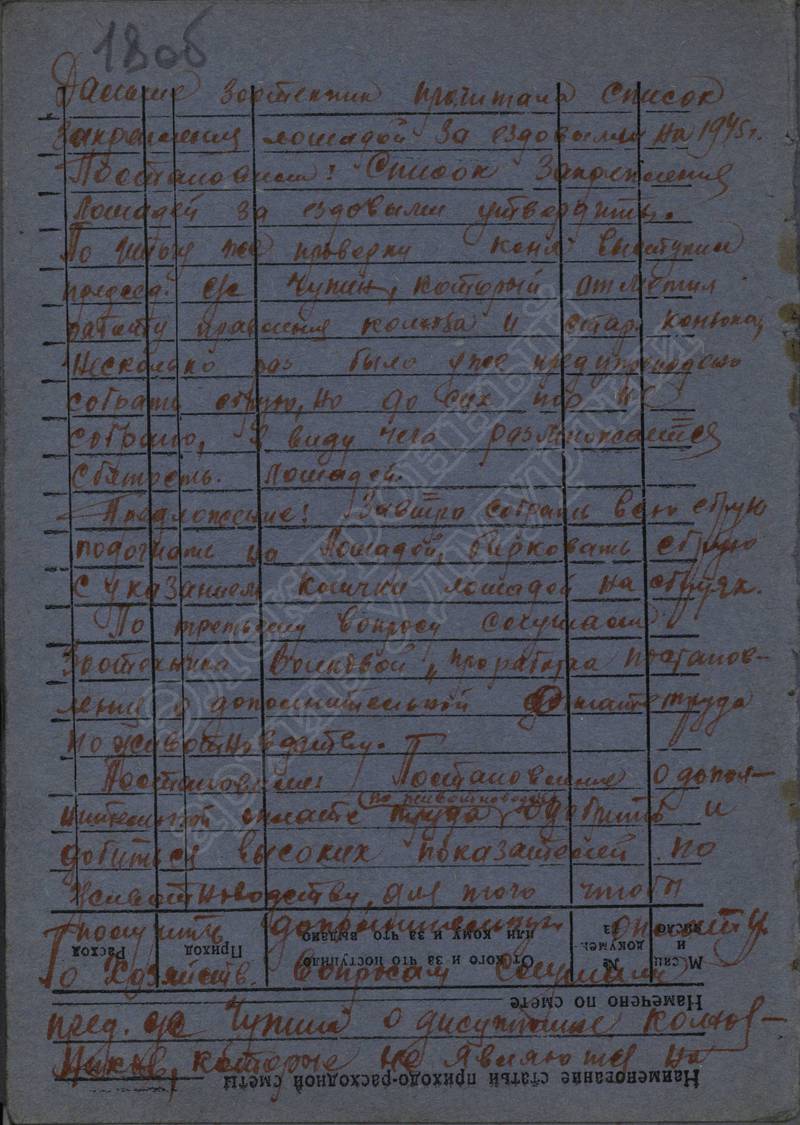 18об
Далее зоотехник прочитала список
закрепления лошадей за ездовыми на 1945 г.
Постановили: Список закрепления
лошадей за ездовыми утвердить.
По итогу проверки коня выступил
председ. с/с Чупин, который отметил
работу правления колхоза и стар. конюха,
несколько раз было уже предупреждено
собрать сбрую, но до сих пор не
собрано, в виду чего размножается
лошадей.
Предложение: Завтра собрать всю сбрую
подогнать на лошадей, бирковать сбрую
с указанием клички лошадей на сбруях.
По третьему вопросу слушали
Зоотехника Волковой „проработка постанов-
ление о дополнительной оплате труда
по животноводству.
Постановили: Постановление о допол-
нительной оплате труда (по животноводству) одобрить и
добиться высоких показателей по
животноводству, для того чтобы
получить дополнительную оплату.
О хозяйств. вопросам слушали
пред. с/с Чупина о дисциплине колхоз-
ников, которые не являются на
Расход
Приход
От кого и за что поступило
или кому и за что выдано
№
докумен-
та
М-сяц
и
число
Намечено по смете
Наименование статьи приходо-расходной сметы
электронный
архив Удмуртии